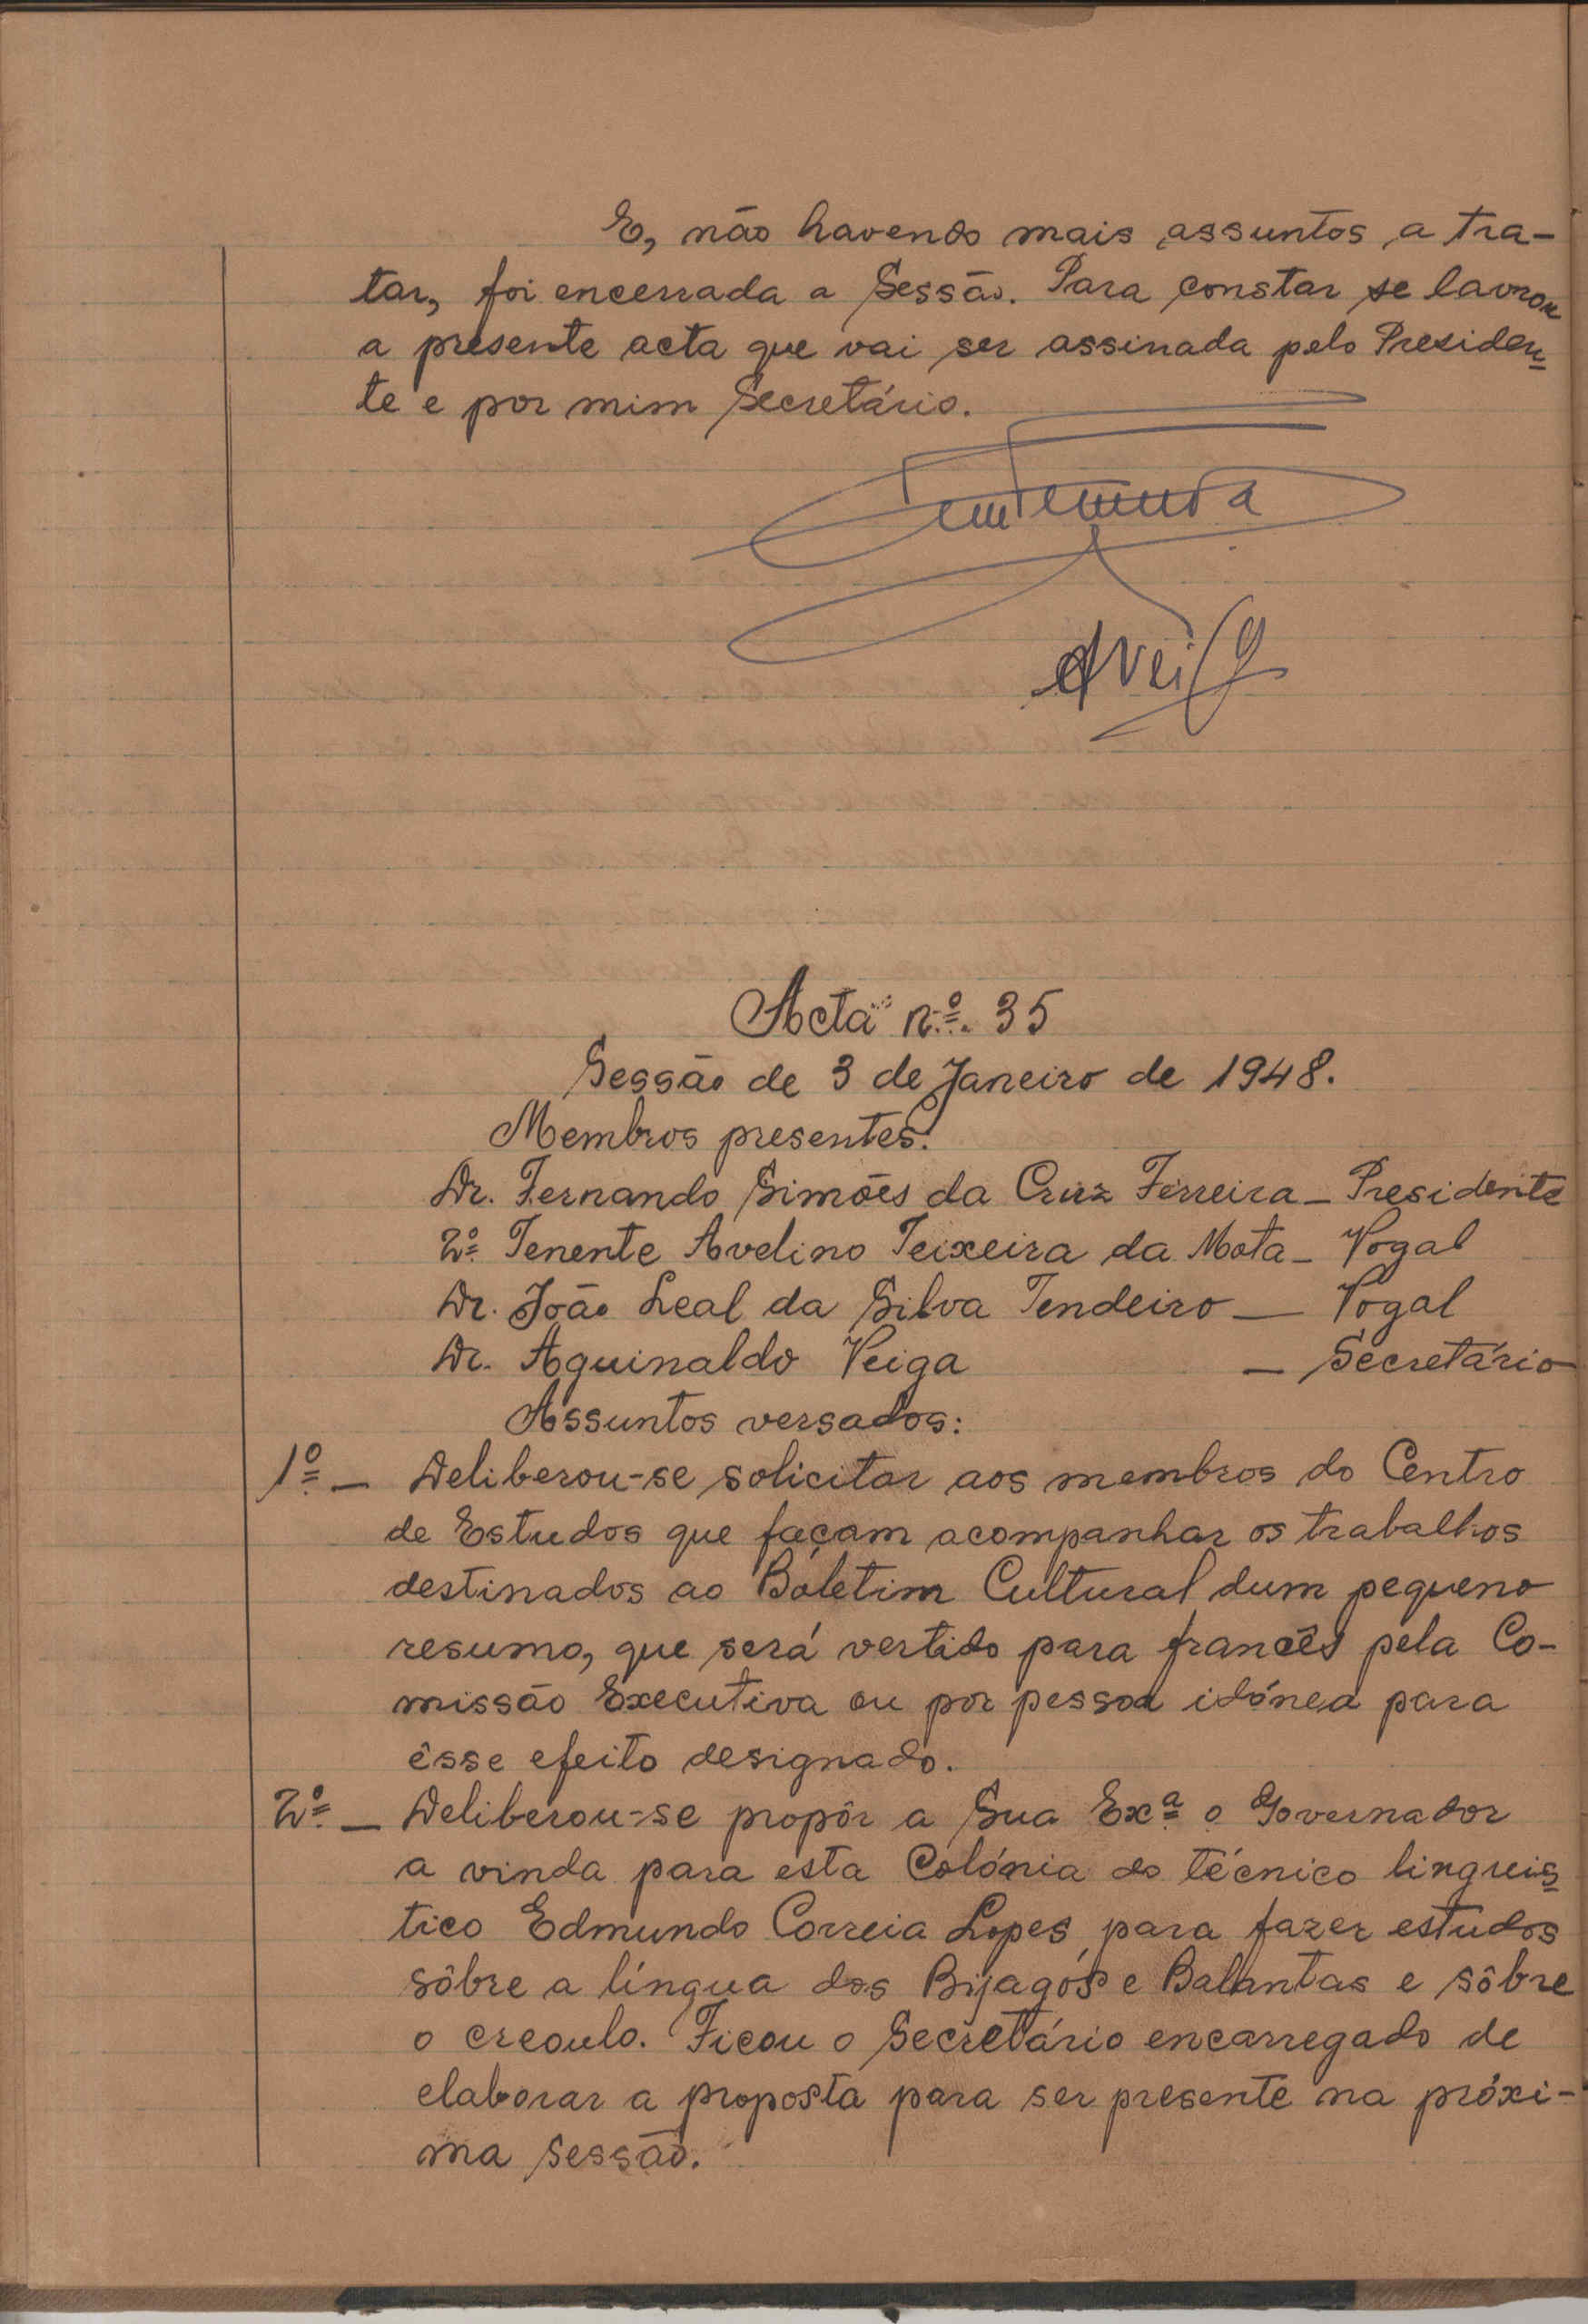 E, não havendo mais assuntos a tra-
tar, foi encerrada a Sessão. Para constar se lavrou
a presente acta que vai ser assinada pelo Presiden-
te e por mim Secretário.
AVeiga
Acta n.º 35
Sessão de 3 de Janeiro de 1948.
Membros presentes:
Dr. Fernando Simões da Cruz Ferreira - Presidente
2º Tenente Avelino Teixeira da Mota - Vogal
Dr. João Leal da Silva Tendeiro — Vogal
Dr. Aguinaldo Veiga — Secretário
Assuntos versados:
1º — Deliberou-se solicitar aos membros do Centro
de Estudos que façam acompanhar os trabalhos
destinados ao Boletim Cultural dum pequeno
resumo, que será vertido para francês pela Co-
missão Executiva ou por pessoa idónea para
êsse efeito designado.
2º — Deliberou-se propôr a Sua Exª o Governador
a vinda para esta Colónia do técnico linguis-
tico Edmundo Correia Lopes, para fazer estudos
sôbre a língua dos Bijagós e Balantas e sôbre
o creoulo. Ficou o Secretário encarregado de
elaborar a proposta para ser presente na próxi-
ma sessão.